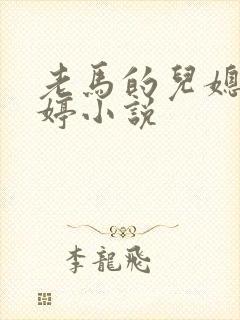 老馬的兒媳
婷小說
李龍飛